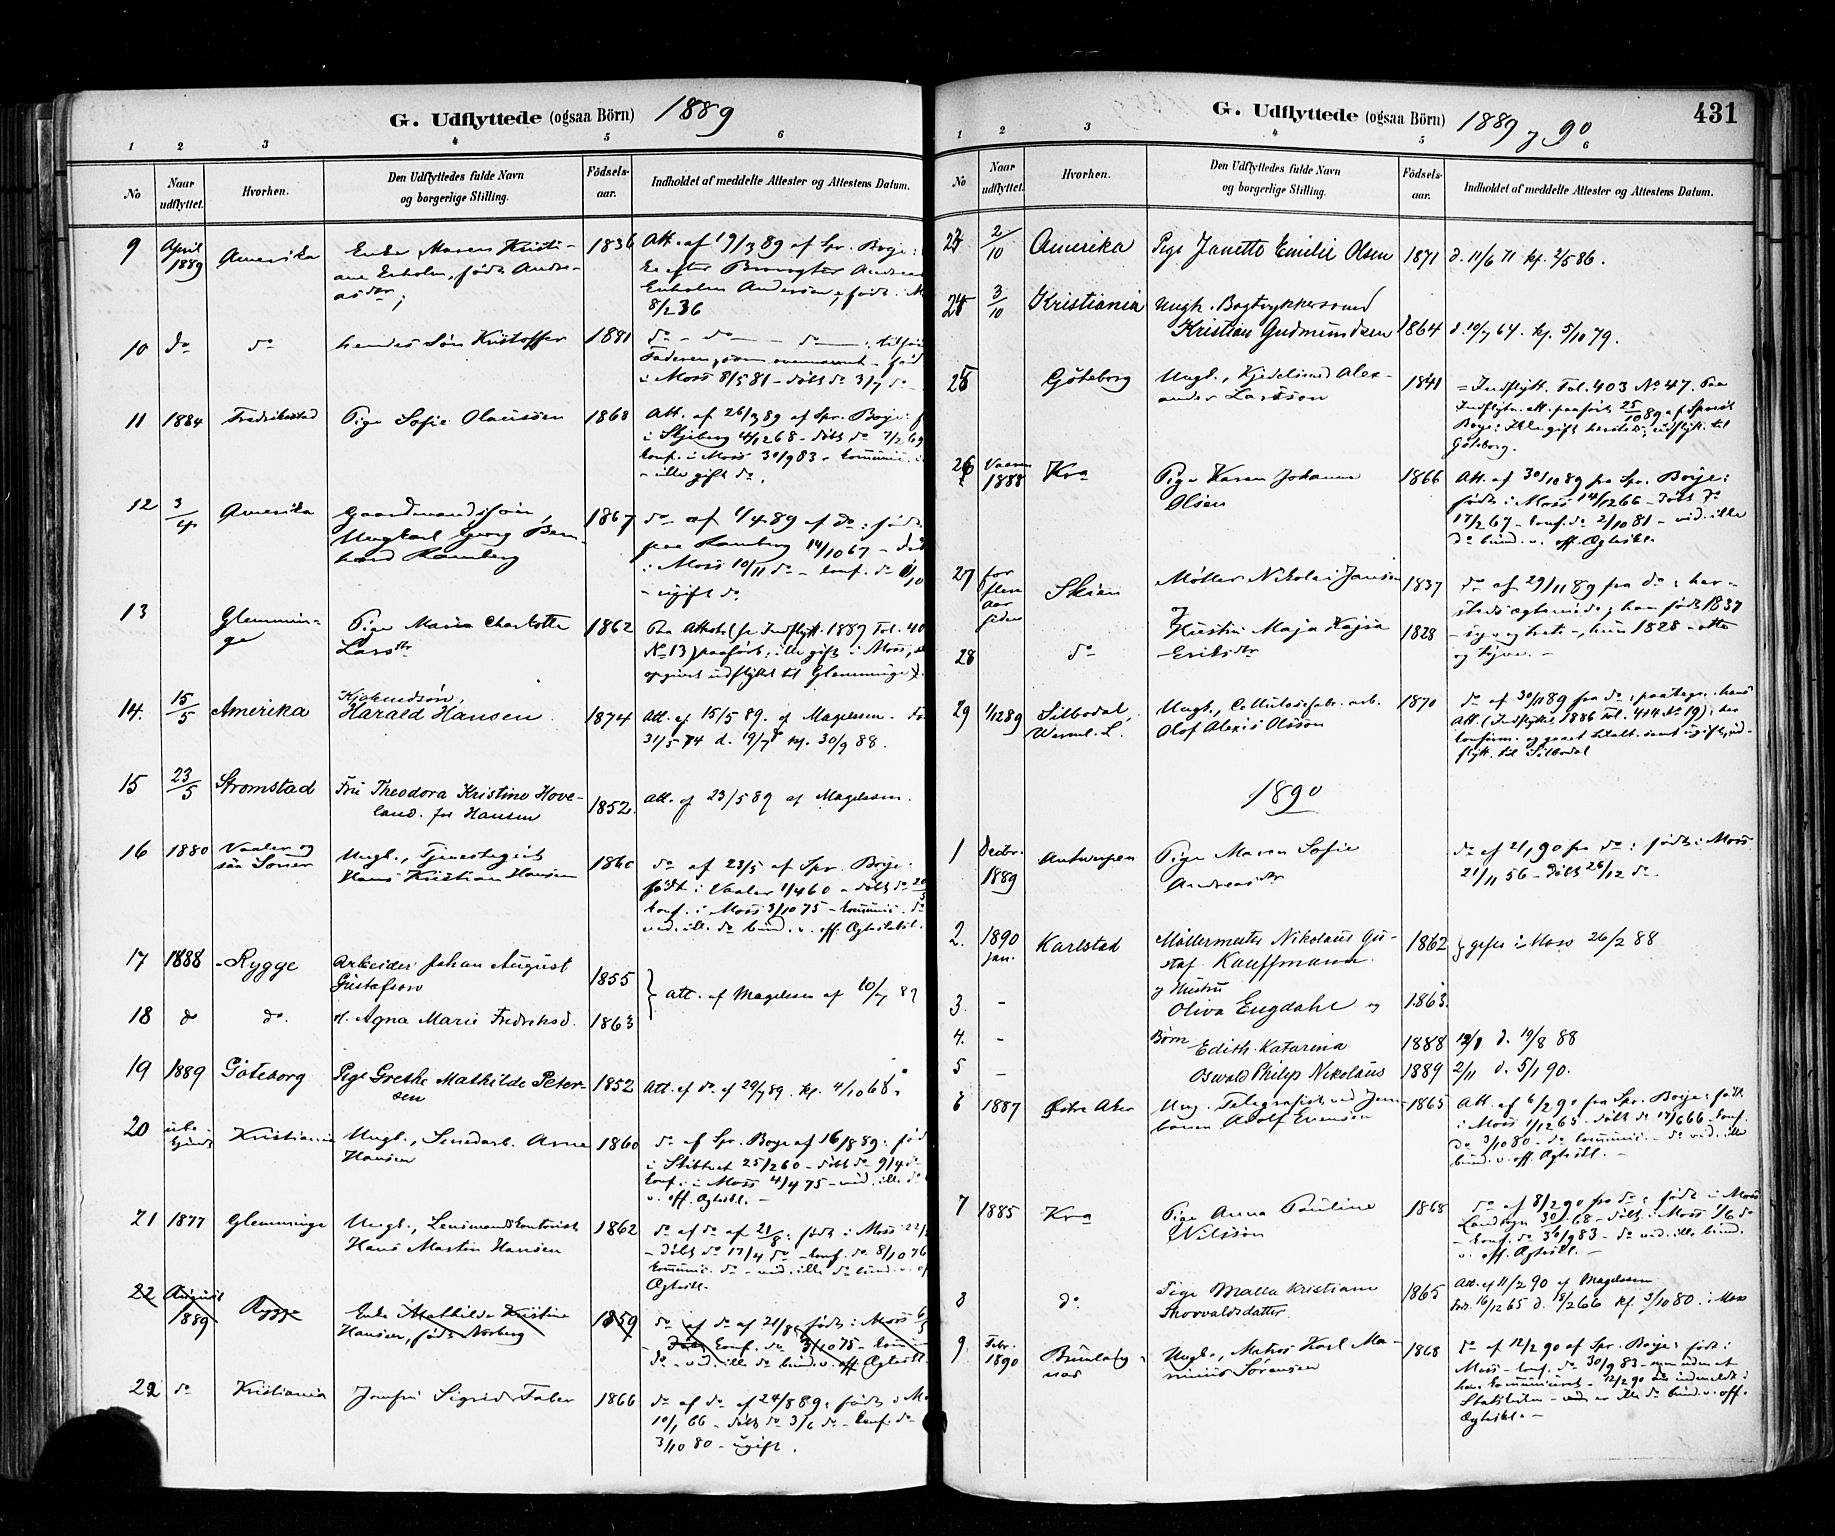 G. Udflyttede (ogsaa Börn) 1889
1 2 3 4 5 6
No Naar udflyttet. Hvorhen. Den Udflyttedes fulde Navn og borgerlige Stilling. Födsels-aar. Indholdet af meddelte Attester og Attestens Datum.
9 April 1889 Amerika Enke Maren Kristi- 1836 Att. af 19/3 89 af Spr. Boye:
ane Enholm, født Andre-
asdtr; Enholm Andersen, født i M
8/2 36
10 do do hendes Søn Kristoffer 1881 do - do - do
Faderen, som ovennævnt - fød
i Moss 8/5 81 - døbt do 3/7 do -
11 1884 Fredrikstad Pige Sofie Olaussen 1868 Att. af 26/3 89 af Spr. Boye: f
i Skjeberg 4/12 68 - døbt do 7/2 69
konf. i Moss 30/9 83 - kommuni.
- ikke gift do.
12 3/4 Amerika Gaardmandssøn, 1867 do af 1/4 89 af do: født
Ungkarl Georg Bern- paa Ramberg 14/10 67 - døbt
hard Ramberg i Moss 10/11 do - konf. do
- ugift do
13 Glemmin- Pige Maria Charlotte 1862 Paa Attest (se Indflytt. 1889 Fol. 40
ge Larsdtr No 13) paaført: ikke gift i Moss;
opgivet udflyttet til Glemminge).
14. 15/5 Amerika Harald Hansen 1874 Att. af 15/5 89. af Magelssen.
31/5 74 d. 19/7 kf. 30/9 88.
15 23/5 Stromstad Fru Theodora Kristine Hove- 1852. Att. af 23/5 89 af Magelssen.
land. før Hansen
16 1880 Vaaler og Ungk., Tjenestegut 1860 do af 23/5 af Spr. Boye:
saa Soner Hans Kristian Hansen født i Vaaler 1/4 60 - døbt do
konf. i Moss 3/10 75 - kommuni. do
vid. ikk. do bund. v. off. Ægteskbl.
17 1888 Rygge Arbeider Johan August 1855 Att. af Magelssen af 10/7 89
Gustafson
18 do do. H. Agna Marie Fredriksd. 1863
19 1889 Göteborg Pige Grethe Mathilde Peter- 1852 Att. af do af 29/7 89. kf. 4/10 68.
sen
20 ube- Kristiania Ungk., Arne 1860 do af Spr. Boye af 16/8 89: fød
kjendt Hansen i Skibtvet 25/2 60 - døbt do 9/4 do -
konf. i Moss 4/4 75 - vid. ikk. do
v. off. Ægteskl. -
21 1877 Glemminge Ungk., Lensmandskontorist 1862 do af do af 21/8: født i Moss
Hans Martin Hansen - døbt do 17/4 do - konf. do 8/10 76
kommuni. do - vid. ikke do bund. v. off
Ægteskl.
22 August 1889 Rygge Enke Mathilde Kristine 1859 do af do af 21/8: født i Moss
Hansen, født Norberg konf. do 3/10 75 -
do - vid. ikk do bund. v. off Ægteskl.
22 do Kristiania Jomfru Sigrid Faber 1866 do af do af 24/8 89: født i Mo
10/1 66 - døbt do 3/6 do - konf. do
3/10 80 - ugift.
G. Udflyttede (ogsaa Börn) 1889 og 90 431
1 2 3 4 5 6
No Naar udflyttet. Hvorhen. Den Udflyttedes fulde Navn og borgerlige Stilling. Födsels-aar. Indholdet af meddelte Attester og Attestens Datum.
23 2/10 Amerika Pige Janette Emilie Olsen 1871 d. 11/6 71 kf. 2/5 86.
24 3/10 Kristiania Ungk. Bogtrykkersvend
Kristian Gudmundsen 1864 d. 10/7 64. kf. 5/10 79.
25 Göteborg Ungk., Kjedelsmed Alex- 1841 = Indflytt. Fol. 403 No 47. Paa
ander Larsson Indflytn. att. paaført 25/10 89 af Spr.
Boye: Ikke gift herstds; udflytt. til
Göteborg.
26 Vaaren 1888 Kra Pige Karen Johanne 1866 Att. af 30/10 89 fra Spr. Boye:
Olsen født i Moss 14/12 66 - døbt do
17/2 67 - konf. do 2/10 81 - vid. ikke
do bund. v. off. Ægteskl.
27 for flere Aar siden Skien Møller Nikolai Jansen 1837 do af 29/11 89 fra do: her-
og steds ægteviede; han født 1837
28 do Hustru Maja Kajsa 1828 - syv og treti -, hun 1828 - otte
Eriksdtr og tyve. -
29 1/12 89 Silbodal Ungk., Cellulosefabr. arb. 1870 do af 30/11 89 fra do: paategn. hans
Werml. L. Olof Alexis Olsson Att. (Indflyttet 1886 Fol. 414 No 19): her
konfirm. og ugift, ud-
flytt. til Silbodal
1890
1 Decbr. 1889 Antwerpen Pige Maren Sofie do af 2/1 90 fra do: født i Moss
Andreasdtr 21/11 56 - døbt 26/12 do.
2. 1890 Jan. Karlstad Møllermester Nikolaus Gu- 1862 } gifte i Moss 26/2 88
staf Kauffmann.
og Hustru
3. - Oliva Engdahl og 1863
4. - Børn Edith Katarina 1888 12/8 d. 19/8 88
5 - Oswald Philip Nikolaus 1889 2/11 d. 5/1 90.
6 1887 Østre Aker Ung. Telegrafist ved Jern- 1865 Att. af 6/2 90 fra Spr. Boye: født
banen Adolf Evensen i Moss 1/12 65 - døbt do 17/6 66 - konf.
do 3/10 80 - do kommuni. - do vid. ikke
bund. v. off. Ægteskl. -
7 1885 Kra Pige Anna Pauline 1868 do af 8/2 90 fra do: født i Moss
Nilsson Landsogn 30/3 68 - døbt i Moss 1/6 do
- konf. do 30/9 83 - do vid. ikke bund.
v. off. Ægteskl. -
8 do Pige Malla Kristiane 1865 Att. af 11/2 90 af Magelssen
Thorvaldsdatter. født 16/12 65 d. 18/2 66 kf. 3/10 80. i Moss
9. Febr. 1890 Brunlanes Ungk., Matros Karl Ma- 1868 do af 12/2 90 af Spr. Boye: født i
Sørensen Moss - konf. do 30/9 83 -
Statskirken - ved er ikke do bund. v. off.
Ægteskl. -